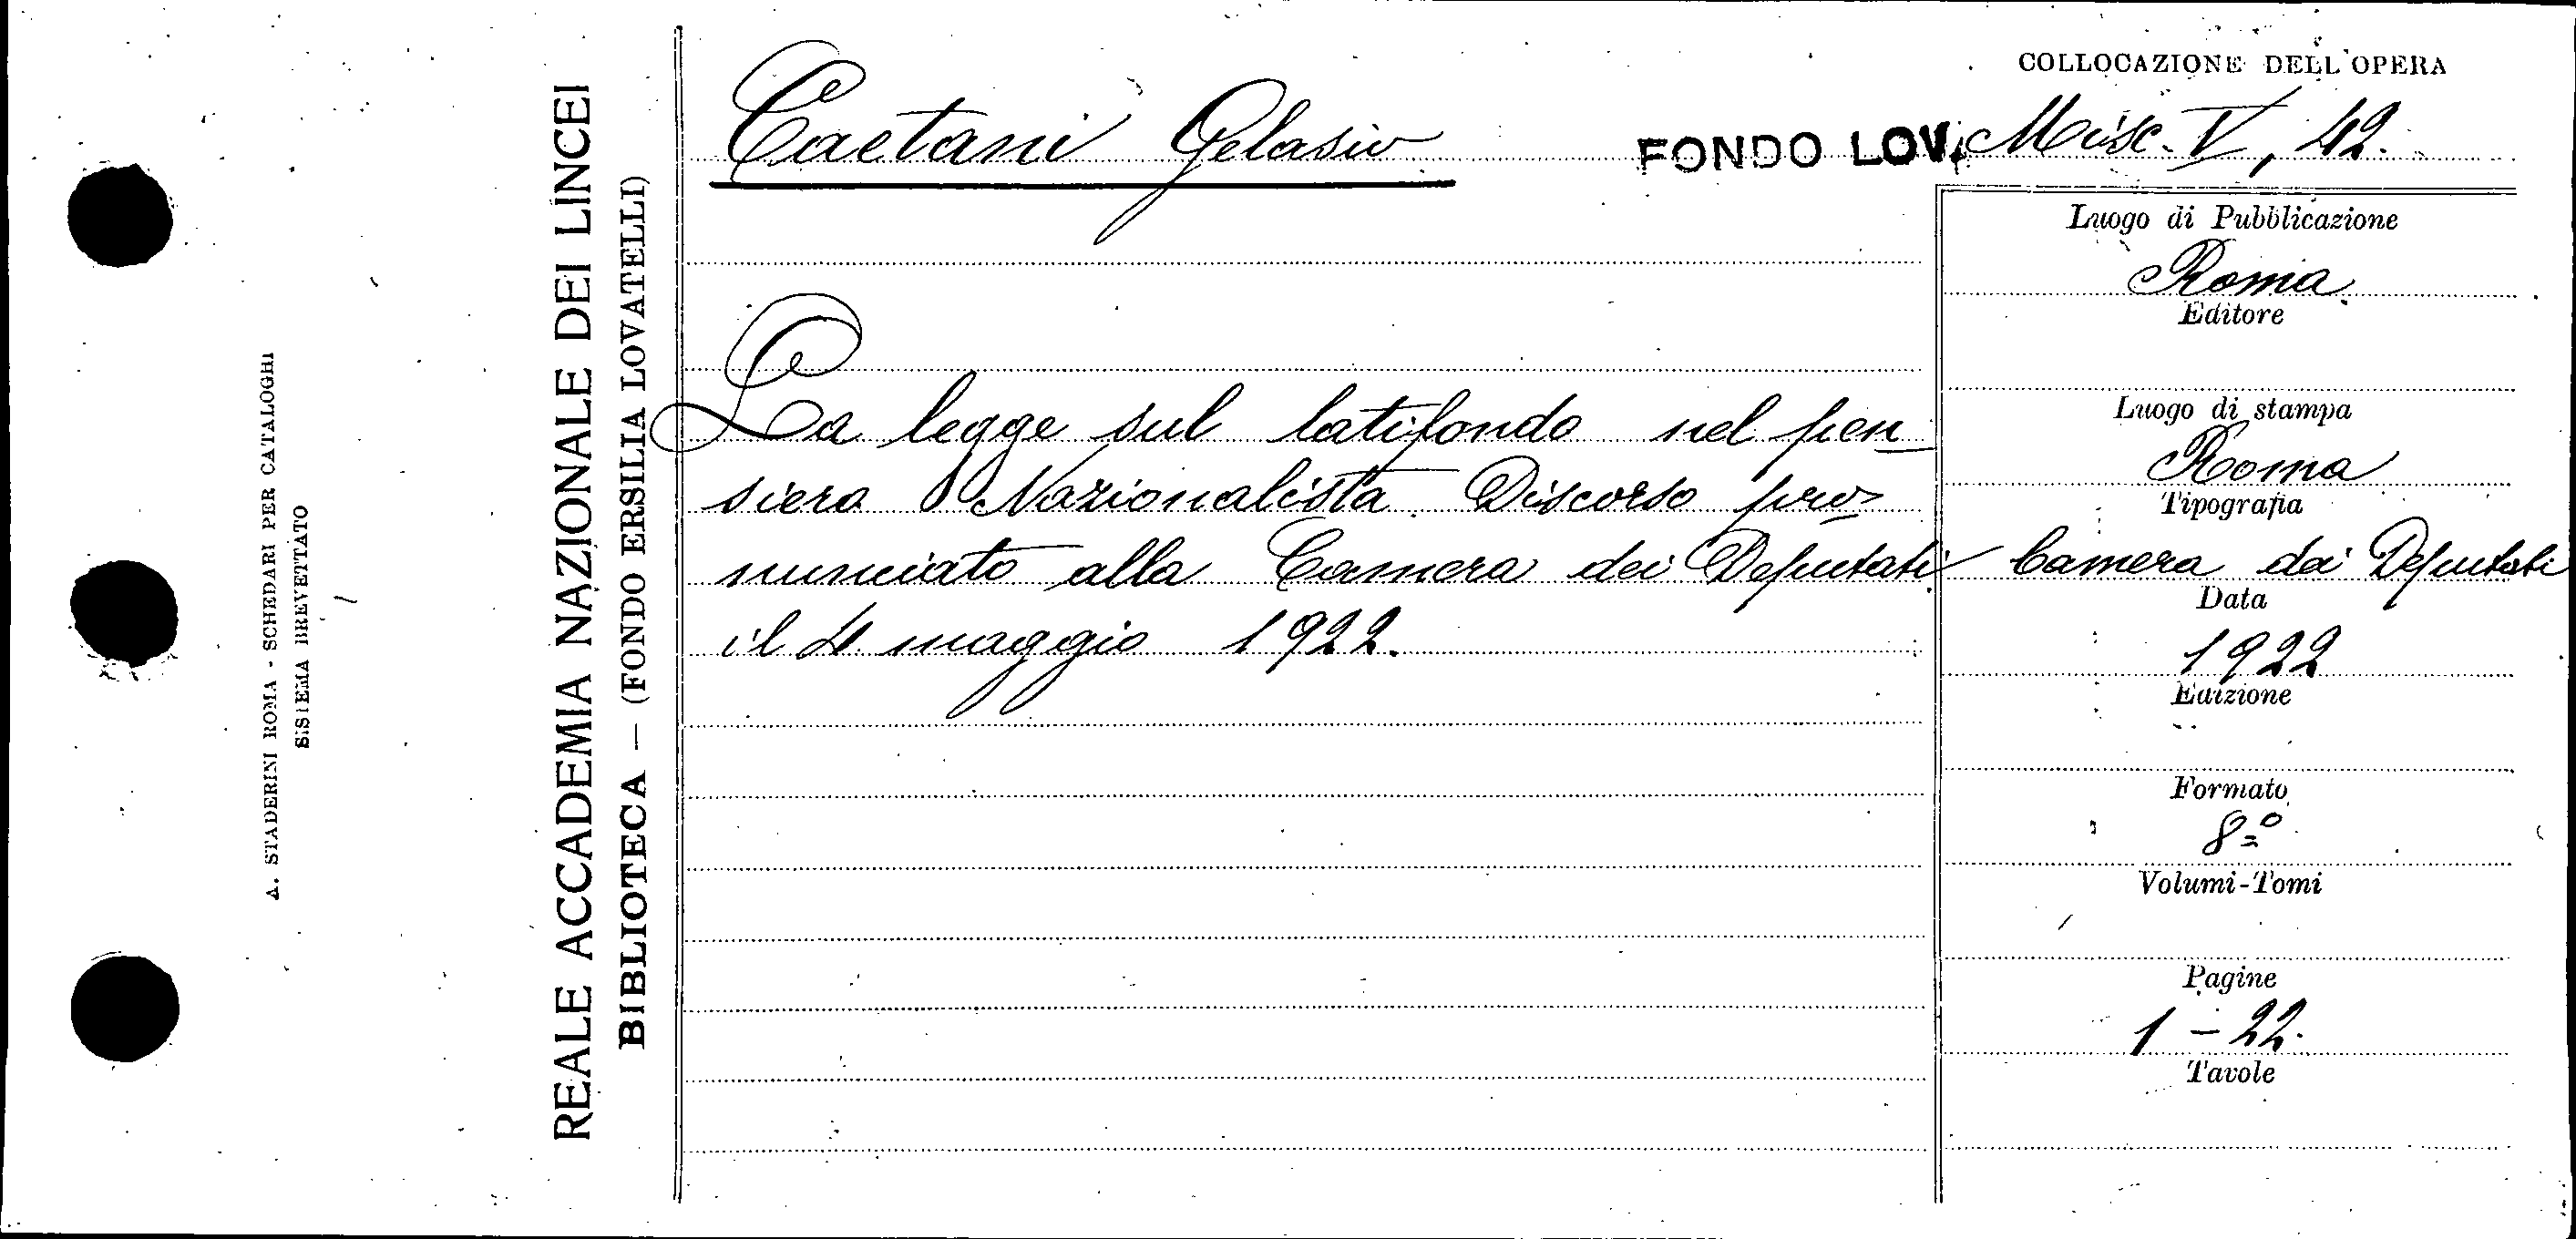 A. STADERINI ROMA - SCHEDARI PER CATALOGHI
SISTEMA BREVETTATO
REALE ACCADEMIA NAZIONALE DEI LINCEI
BIBLIOTECA — (FONDO ERSILIA LOVATELLI)
Caetani Gelasio
La legge sul latifondo nel pen
siero Nazionalista. Discorso pro
nunciato alla Camera dei Deputati
il 4 maggio 1922.
COLLOCAZIONE DELL'OPERA
FONDO LOV. Misc. V, 42.
Luogo di Pubblicazione
Roma
Editore
Luogo di stampa
Roma
Tipografia
Camera dei Deputati
Data
1922
Edizione
Formato
8º
Volumi-Tomi
Pagine
1 - 22.
Tavole